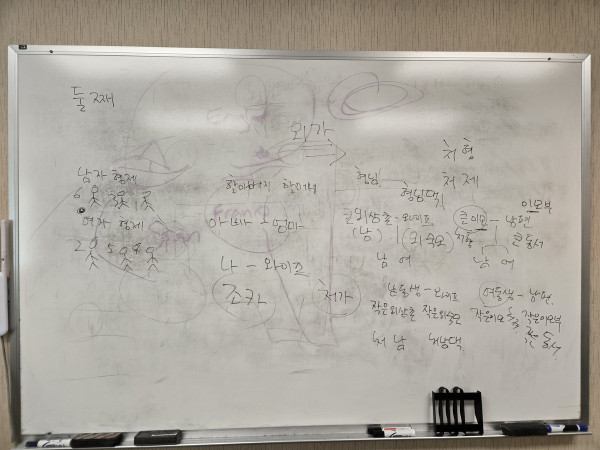 둘째
외가
처형
처제
남자 형제
할아버지 할머니
형님
형님댁
이모부
여자 형제
아빠 - 엄마
큰외삼촌 - 와이프
큰이모 - 남편
(남) (외숙모)
처형
큰동서
나 - 와이프
남 여
남 여
조카
처가
남동생 - 와이프
여동생 - 남편
작은외삼촌 작은외숙모
작은이모
작은이모부
처남 처남댁
동서